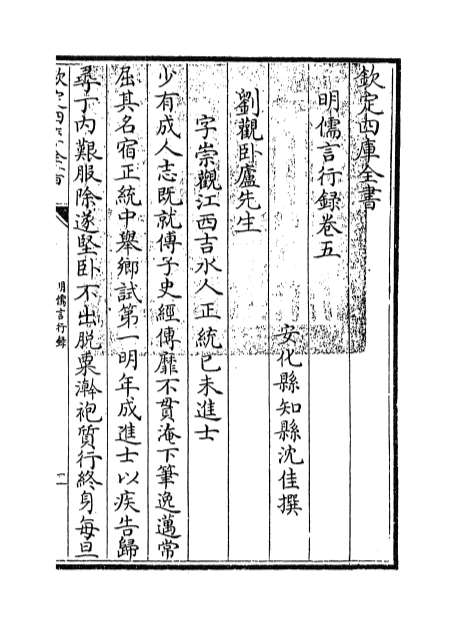 欽定四庫全書
明儒言行録卷五
安化縣知縣沈佳撰
劉觀卧廬先生
字崇觀江西吉水人正統己未進士
少有成人志既就傅子史經傳靡不貫淹下筆逸邁常
屈其名宿正統中舉鄉試第一明年成進士以疾告歸
尋丁内艱服除遂堅卧不出脱粟澣袍質行終身每旦
欽定四庫全書
明儒言行録
一